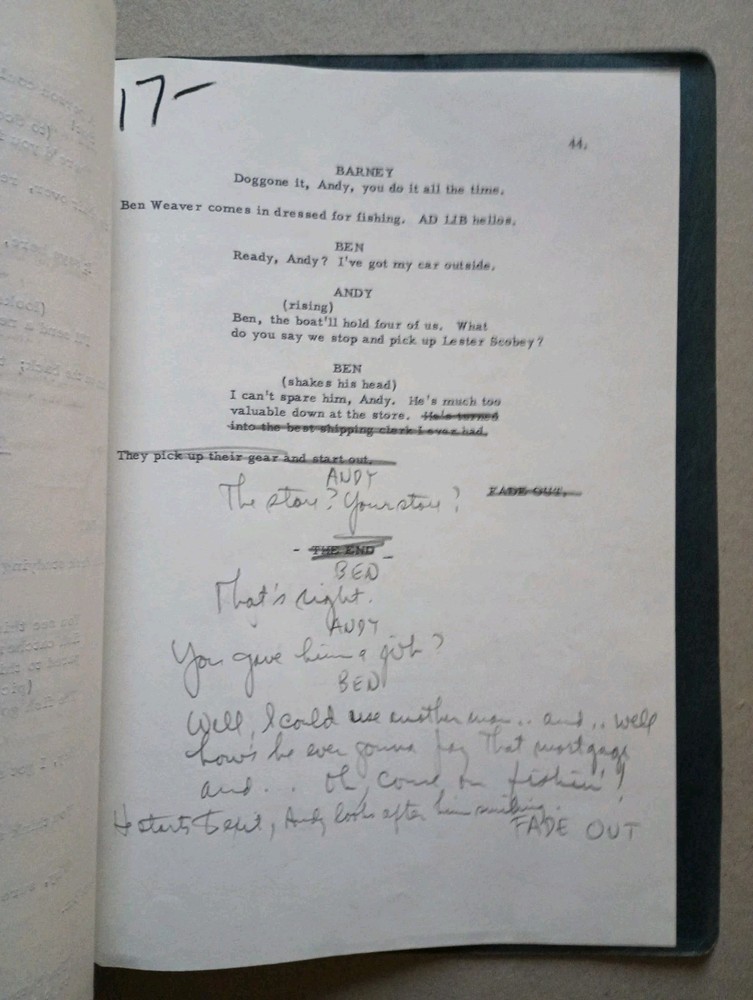 17-
44.
BARNEY
Doggone it, Andy, you do it all the time.
Ben Weaver comes in dressed for fishing. AD LIB hellos.
BEN
Ready, Andy? I've got my car outside.
ANDY
(rising)
Ben, the boat'll hold four of us. What
do you say we stop and pick up Lester Scobey?
BEN
(shakes his head)
I can't spare him, Andy. He's much too
valuable down at the store. He's turned
into the best shipping clerk I ever had.
They pick up their gear and start out.
ANDY
The store? Your store?
FADE OUT.
- THE END -
BEN
That's right.
ANDY
You gave him a job?
BEN
Well, I could use another man.. and.. well
how's he ever gonna pay that mortgage
and... Oh, come on fishin'!
He starts to exit, Andy looks after him smiling.
FADE OUT